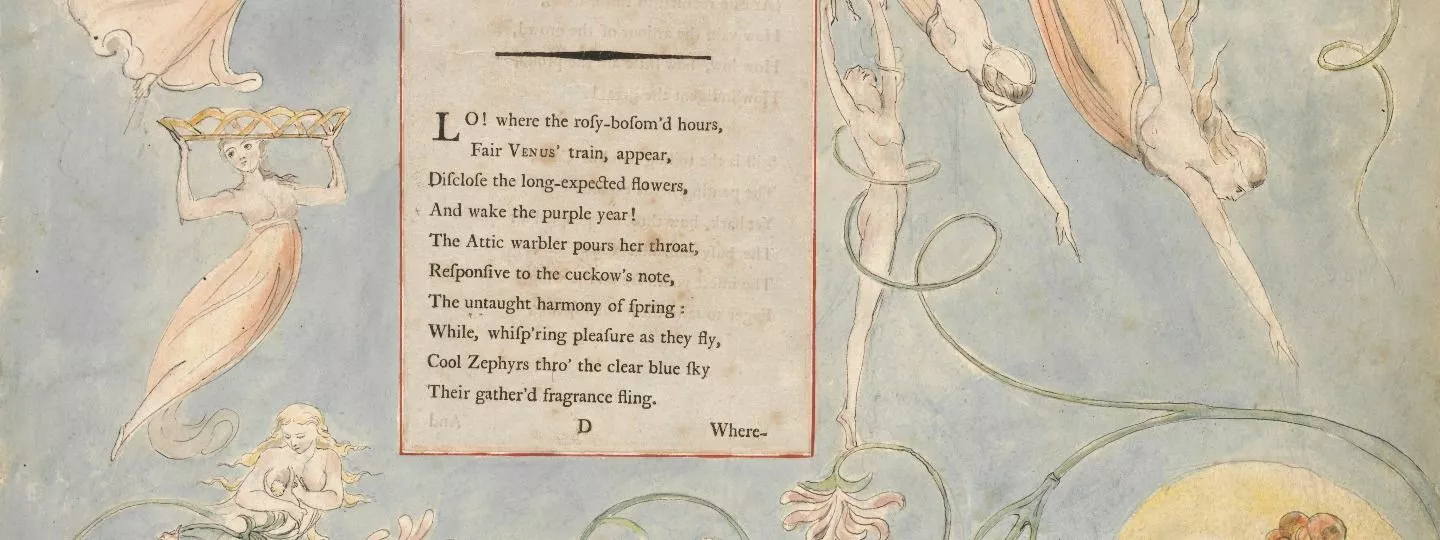 LO! where the roſy-boſom'd hours,
Fair VENUS' train, appear,
Diſcloſe the long-expected flowers,
And wake the purple year!
The Attic warbler pours her throat,
Reſponſive to the cuckow's note,
The untaught harmony of ſpring :
While, whiſp'ring pleaſure as they fly,
Cool Zephyrs thro' the clear blue ſky
Their gather'd fragrance fling.
D
Where-